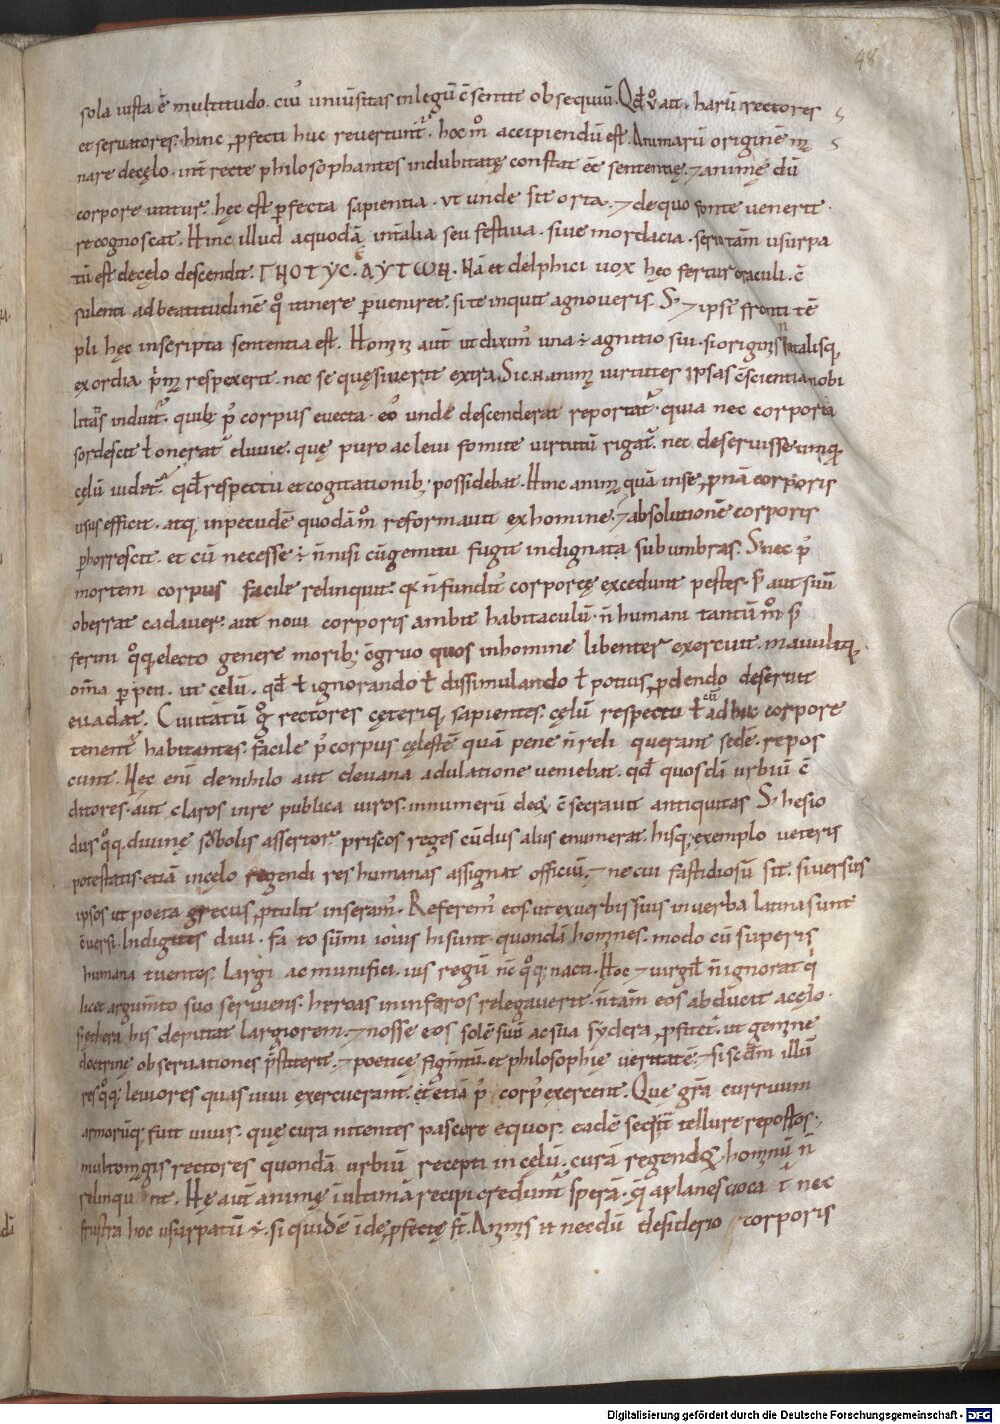 48
sola iusta ē multitudo. cui᾽ uniūsitas in legū ꝯ̄sentit obsequiū. Qđ ů ait. harū rectores
et seruatores. hinc ꝓfecti huc reuertunt᾽. hoc mº accipiendū est. Animarū originē m̅
nare decęlo. int̄ recte philosophantes indubitatę constat eē sententię. ⁊ animę dū
corpore utitur. hęc est ꝑfecta sapientia. ut unde sit orta. ⁊ de quo fonte uenerit.
recognoscat. Hinc illud aquodā int̄ alia seu festiua. siue mordacia. serio tam̄ usurpa
tū est decęlo descendit. ΓΝΟΤΥC. ΑΥΤѠΝ. Nā et delphici uox hęc fertur oraculi. ꝯ̄
sulenti ad beatitudinē qº itinere ꝑueniret. si te inquit agnoueris. S; ⁊ ipsi᾽ fronti tē
pli hęc inscripta sententia est. Homini aut̄ ut dixim᾽ una ÷ agnitio sui. si originis natalisq;
exordia p̄m̄ respexerit. nec se quęsiuerit extra. Sic.N. anim᾽ uirtutes ipsas ꝯ̄scientia nobi
litatis induit᾽. quib; p᾽ corpus euecta. eo᾽ unde descenderat reportat᾽. quia nec corporea
sordescit ł onerat᾽ eluuie. quę puro ac leui fomite uirtutū rigat᾽. nec deseruisse umq̄
cęlū uidet᾽. qđ respectu et cogitationib; possidebat. Hinc anim᾽ quā in se ꝓnā corporis
usus efficit. atq; in pecudē quodā mº reformauit ex homine. ⁊ absolutionē corporis
ꝑhorrescit. et cū necesse ÷ n̄ nisi cū gemitu fugit indignata sub umbras. S; nec p᾽
mortem corpus facile relinquit. q̄ n̄ fundit᾽ corporeę excedunt pestes. s; aut suū
oberrat cadauer. aut noui corporis ambit habitaculū. n̄ humani tantū mº. s;
ferini qºq; electo genere morib; ꝯ̄gruo quos in homine libenter exercuit. mauultq;
om̄a ꝑpeti. ut cęlū. qđ ł ignorando ł dissimulando ł potius ꝓdendo deseruit
euadat. Ciuitatū gº rectores cęteriq; sapientes. cęlū respectu ł cū adhuc corpore
tenent᾽ habitantes. facile p᾽ corpus cęlestē quā pene n̄ reli querant sedē. repos
cunt. Nec eni᾽ de nihilo aut de uana adulatione ueniebat. qđ quosdā urbiū ꝯ̄
ditores. aut claros in re publica uiros. in numerū deoꝝ ꝯ̄secrauit antiquitas S; hesio
dus qºq; diuinę sobolis assertor᾽. priscos reges cū dus aliis enumerat. hisq; exemplo ueteris
potestatis. etiā in cęlo regendi res humanas assignat officiū. ⁊ ne cui fastidiosū sit. si uersus
ipsos ut poeta gręcus ꝓtulit inseram᾽. Referem᾽ eos. ut ex uerbis suis in uerba latina sunt
ꝯ̄uersi. Indigites diui. fa to sūmi iouis hi sunt. quondā homines. modo cū superis
humana tuentes. Largi ac munifici. ius regū nc̄ qºq; nacti. Hoc ⁊ uirgiľ n̄ ignorat. q᾽
licet argumto suo seruiens. hẽroas in inferos relegauerit. n̄ tam̄ eos abducit acęlo.
s; ęthera his deputat largiorem. ⁊ nosse eos solē suū ac sua sydera ꝓfitet᾽. ut gemine
doctrinę obseruationes p̄stiterit. ⁊ poeticę figmtū. et philosophię ueritatē. ⁊ si scdm illū
res qºq; leuiores quas uiui exercuerant. etiā p᾽ corp᾽ exercent. Que gr̄a curruum
armorūq; fuit uiuis. quę cura nitentes pascere equos. eadē seq̄t᾽ tellure repostos;
multo magis rectores quondā urbiū recepti in cęlū. curā regendoꝝ hominū n̄
relinqu nt. Hę aut̄ animę ī ultimā recipi credunt᾽ sperā. q̄ aplanes uocat᾽ nec
frustra hoc usurpatū ÷. si quidē īde ꝓfectę st̄. Animis .N. necdū desiderio corporis